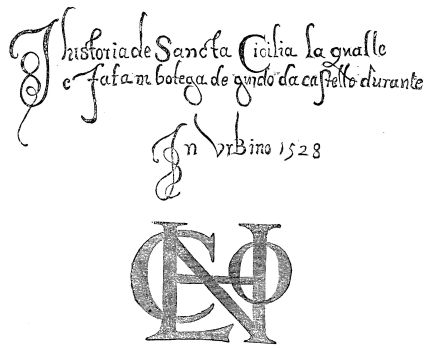 Jhistoria de Sancta Cicilia la qualle
e fata in botega de guido da castello durante
In Urbino 1528